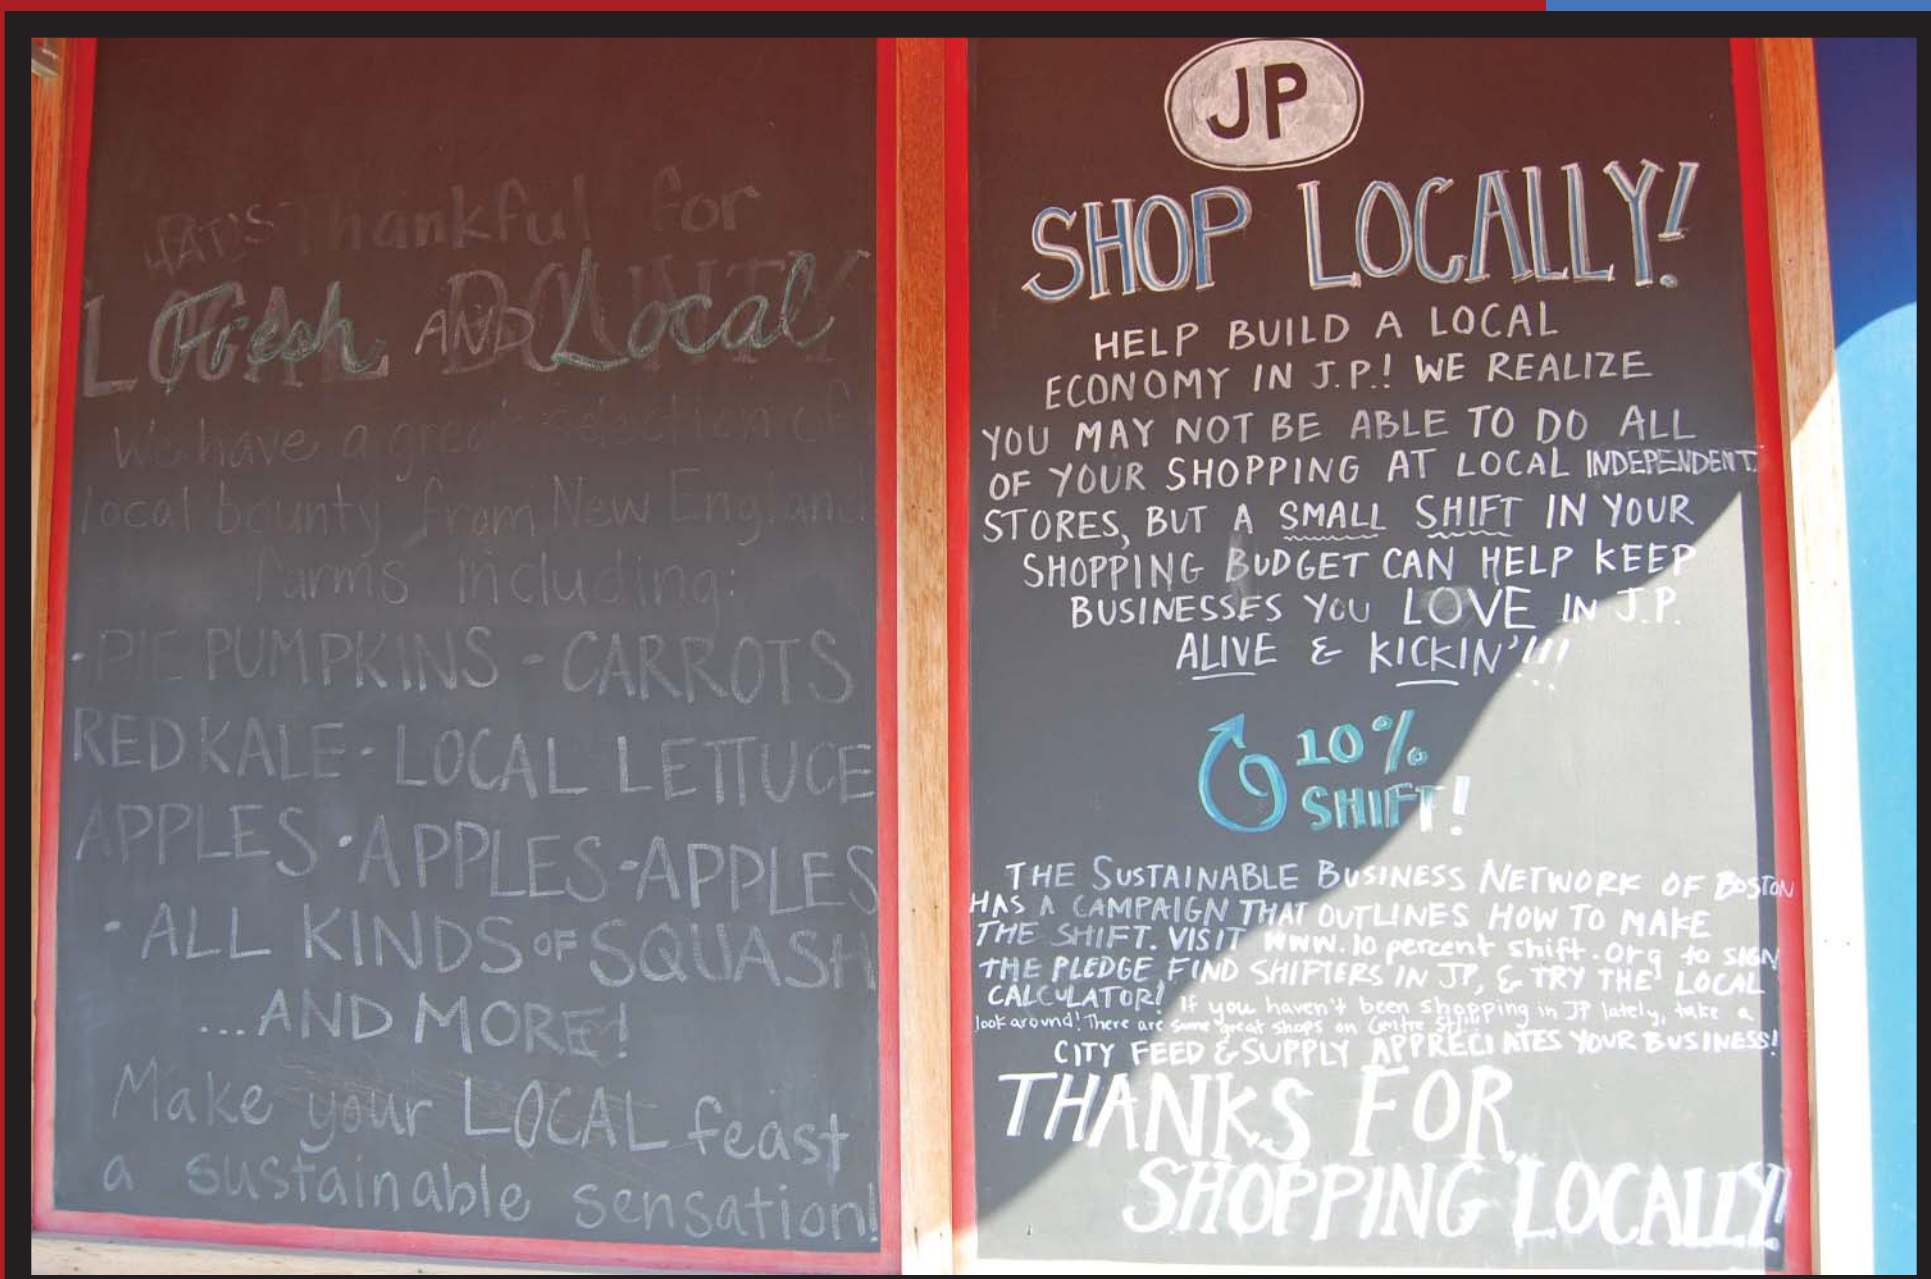 Thankful for
LOCAL BOUNTY
Fresh AND Local
We have a great selection of
local bounty from New England
farms including:
·PIE PUMPKINS - CARROTS
RED KALE - LOCAL LETTUCE
APPLES · APPLES - APPLES
· ALL KINDS OF SQUASH
...AND MORE!
Make your LOCAL feast
a sustainable sensation!
JP
SHOP LOCALLY!
HELP BUILD A LOCAL
ECONOMY IN J.P.! WE REALIZE
YOU MAY NOT BE ABLE TO DO ALL
OF YOUR SHOPPING AT LOCAL INDEPENDENT
STORES, BUT A SMALL SHIFT IN YOUR
SHOPPING BUDGET CAN HELP KEEP
BUSINESSES YOU LOVE IN J.P.
ALIVE & KICKIN'!!!
10%
SHIFT!
THE SUSTAINABLE BUSINESS NETWORK OF BOSTON
HAS A CAMPAIGN THAT OUTLINES HOW TO MAKE
THE SHIFT. VISIT WWW.10 percent shift.org to SIGN
THE PLEDGE FIND SHIFTERS IN JP, & TRY THE LOCAL
CALCULATOR! If you haven't been shopping in JP lately, take a
look around! There are some great shops on Centre St!
CITY FEED & SUPPLY APPRECIATES YOUR BUSINESS!
THANKS FOR
SHOPPING LOCALLY!